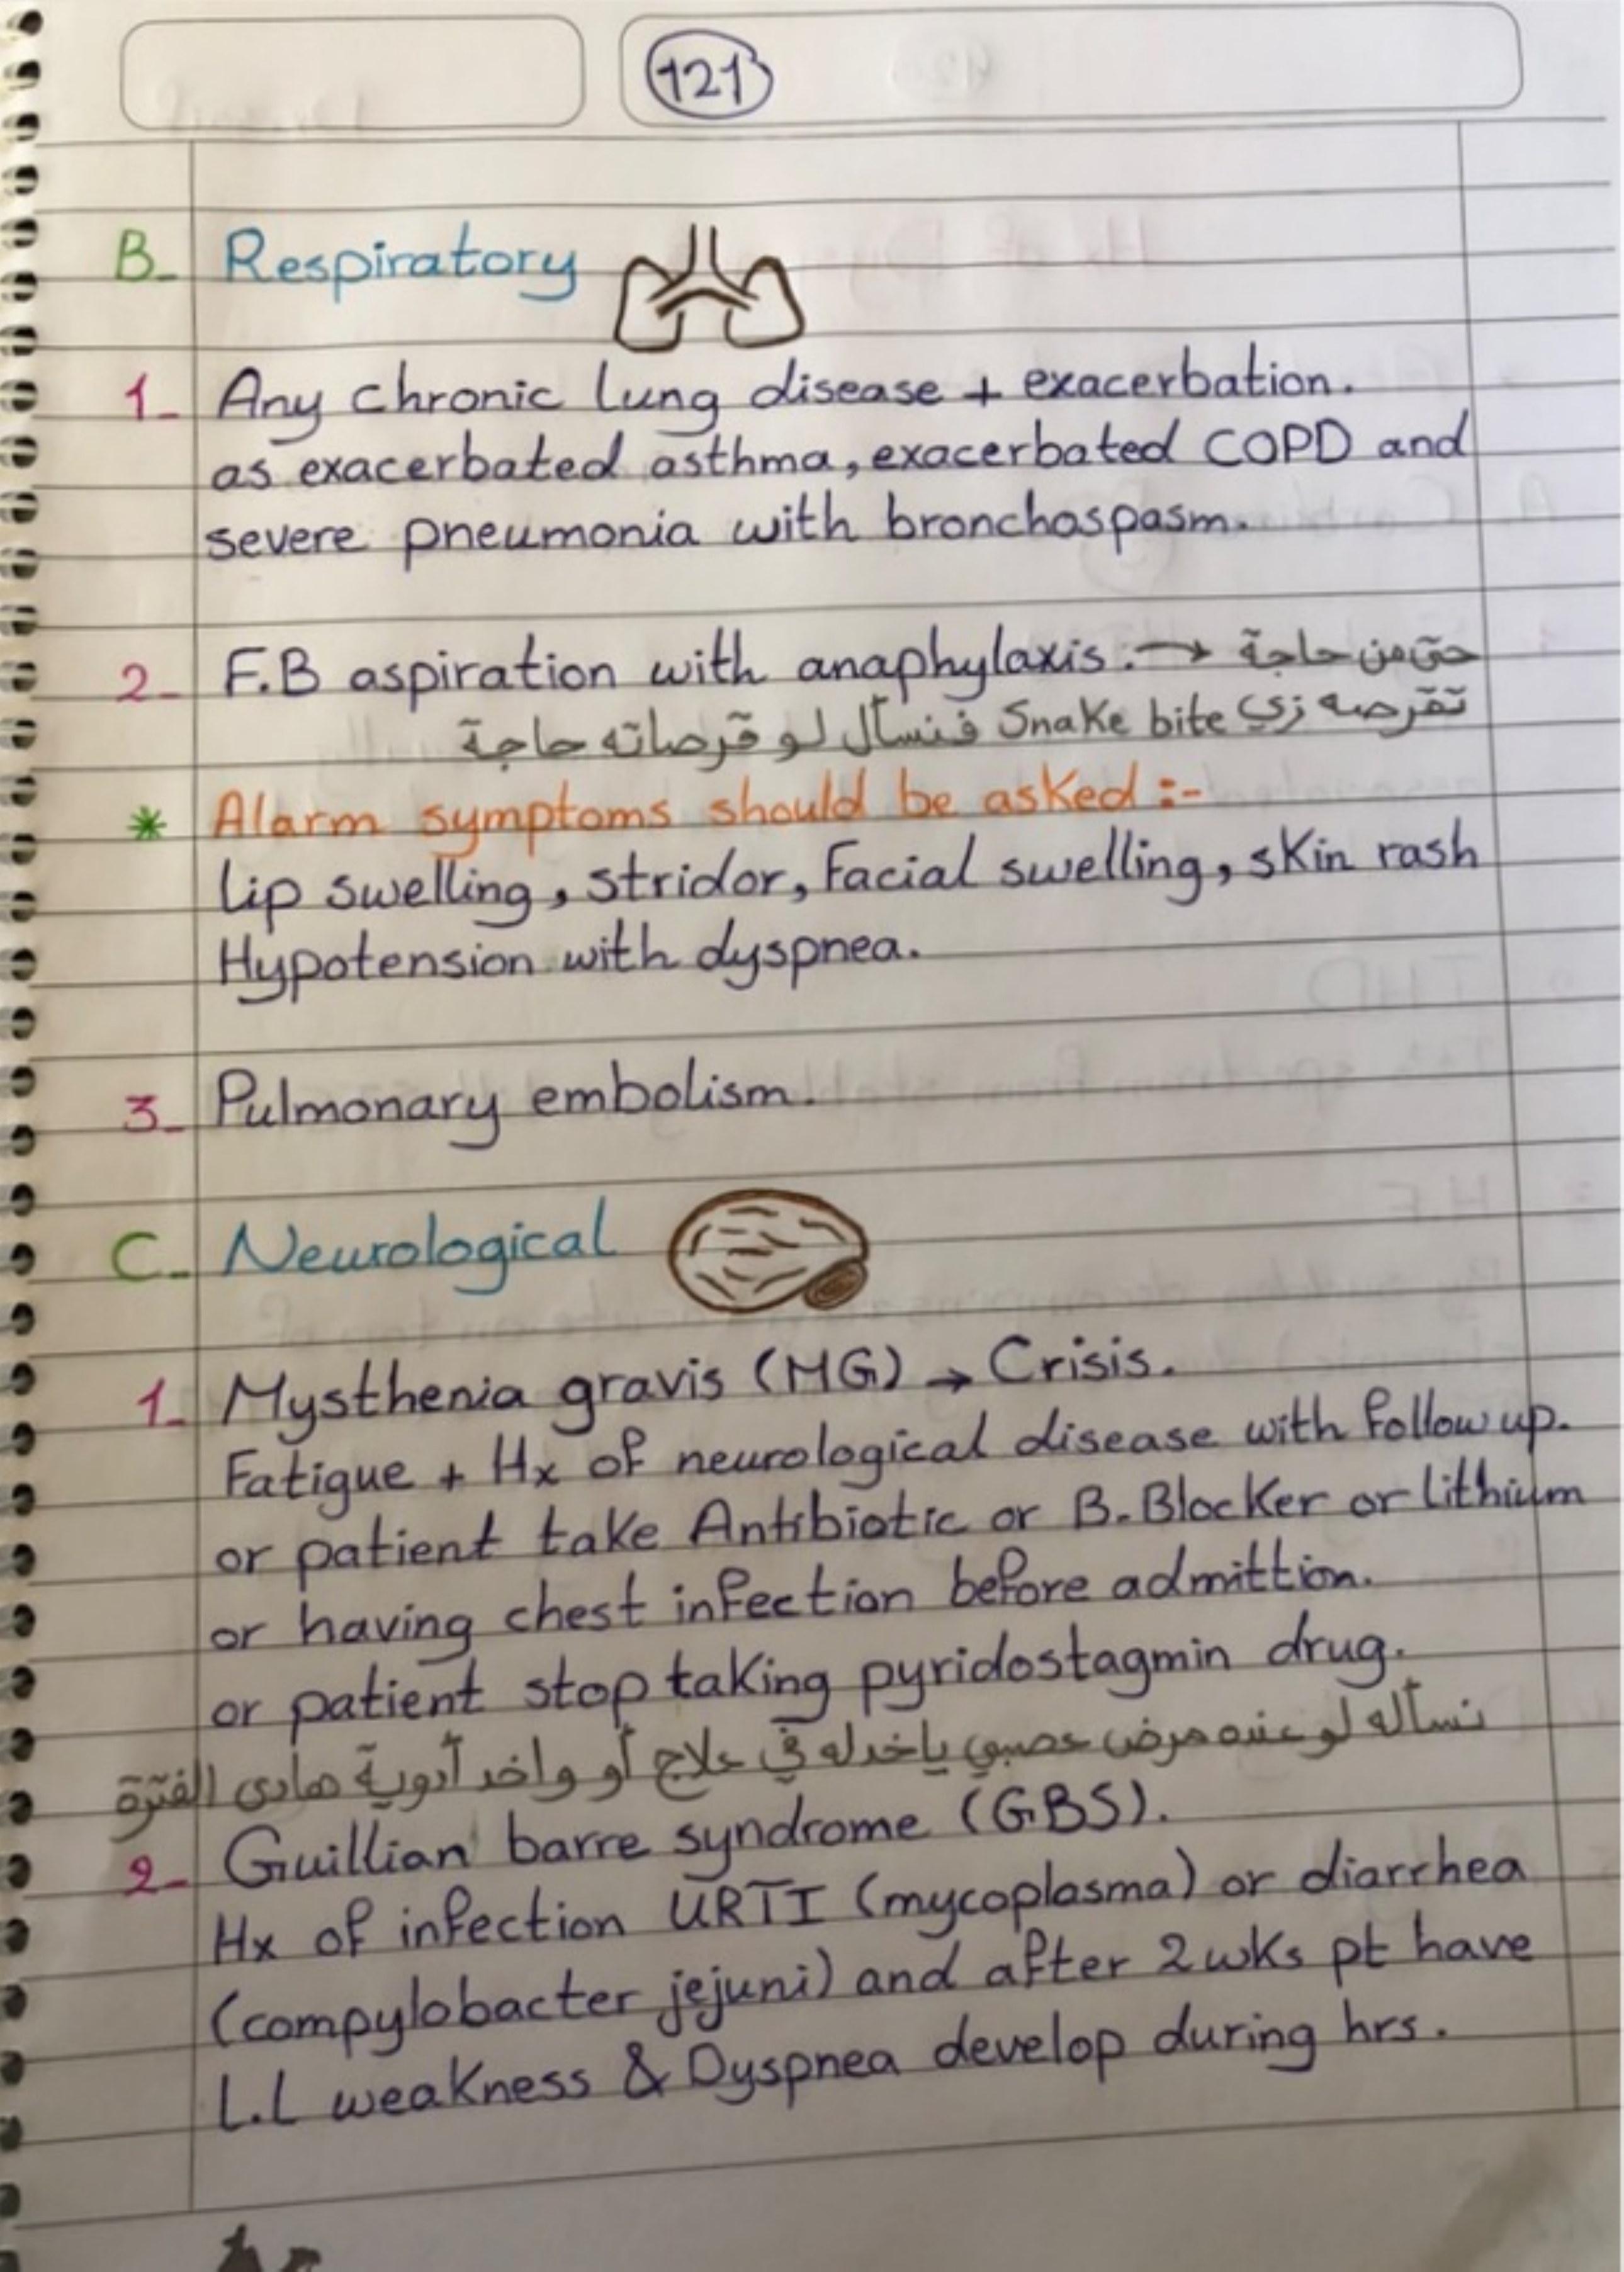 121
B- Respiratory
1- Any chronic lung disease + exacerbation.
as exacerbated asthma, exacerbated COPD and
severe pneumonia with bronchospasm.
2- F.B aspiration with anaphylaxis. → حتى من حاجة
تقرصه زي Snake bite فنسأل لو قرصاته حاجة
* Alarm symptoms should be asked :-
lip swelling, stridor, Facial swelling, skin rash
Hypotension with dyspnea.
3- Pulmonary embolism.
C- Neurological
1- Mysthenia gravis (MG) → Crisis.
Fatigue + Hx of neurological disease with follow up.
or patient take Antibiotic or B.Blocker or lithium
or having chest infection before admittion.
or patient stop taking pyridostagmin drug.
نسأله لو عنده مرض عصبي ياخدله في علاج أو واخد أدوية هادى الفترة
2- Guillian barre syndrome (GBS).
Hx of infection URTI (mycoplasma) or diarrhea
(compylobacter jejuni) and after 2 wks pt have
L.L weakness & Dyspnea develop during hrs.